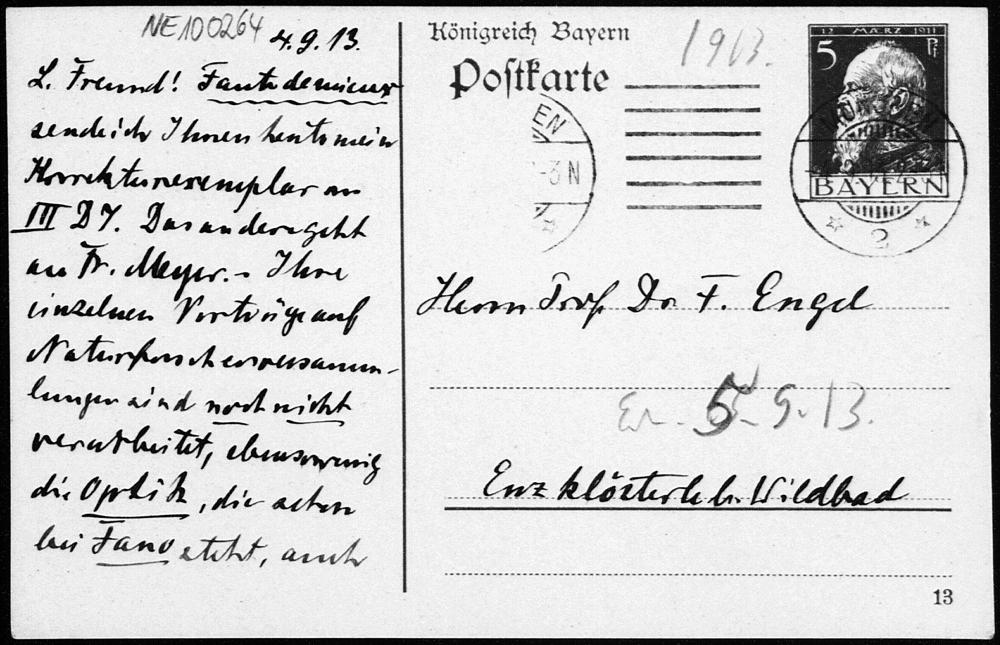 NE100264
4.9.13.
L. Freund! Faute de mieux
sende ich Ihnen heute mein
Korrekturexemplar von
III D 7. Das andere geht
an Fr. Meyer. – Ihre
einzelnen Vorträge auf
Naturforscherversamm-
lungen sind noch nicht
verarbeitet, ebensowenig
die Optik, die schon
bei Fano steht, auch
Königreich Bayern
Postkarte
1913.
12 MÄRZ 1911
5 Pf
BAYERN
MÜNCHEN
2
EN
-3 N
Herrn Prof Dr F. Engel
Er. 5.9.13.
Enzklösterle b. Wildbad
13